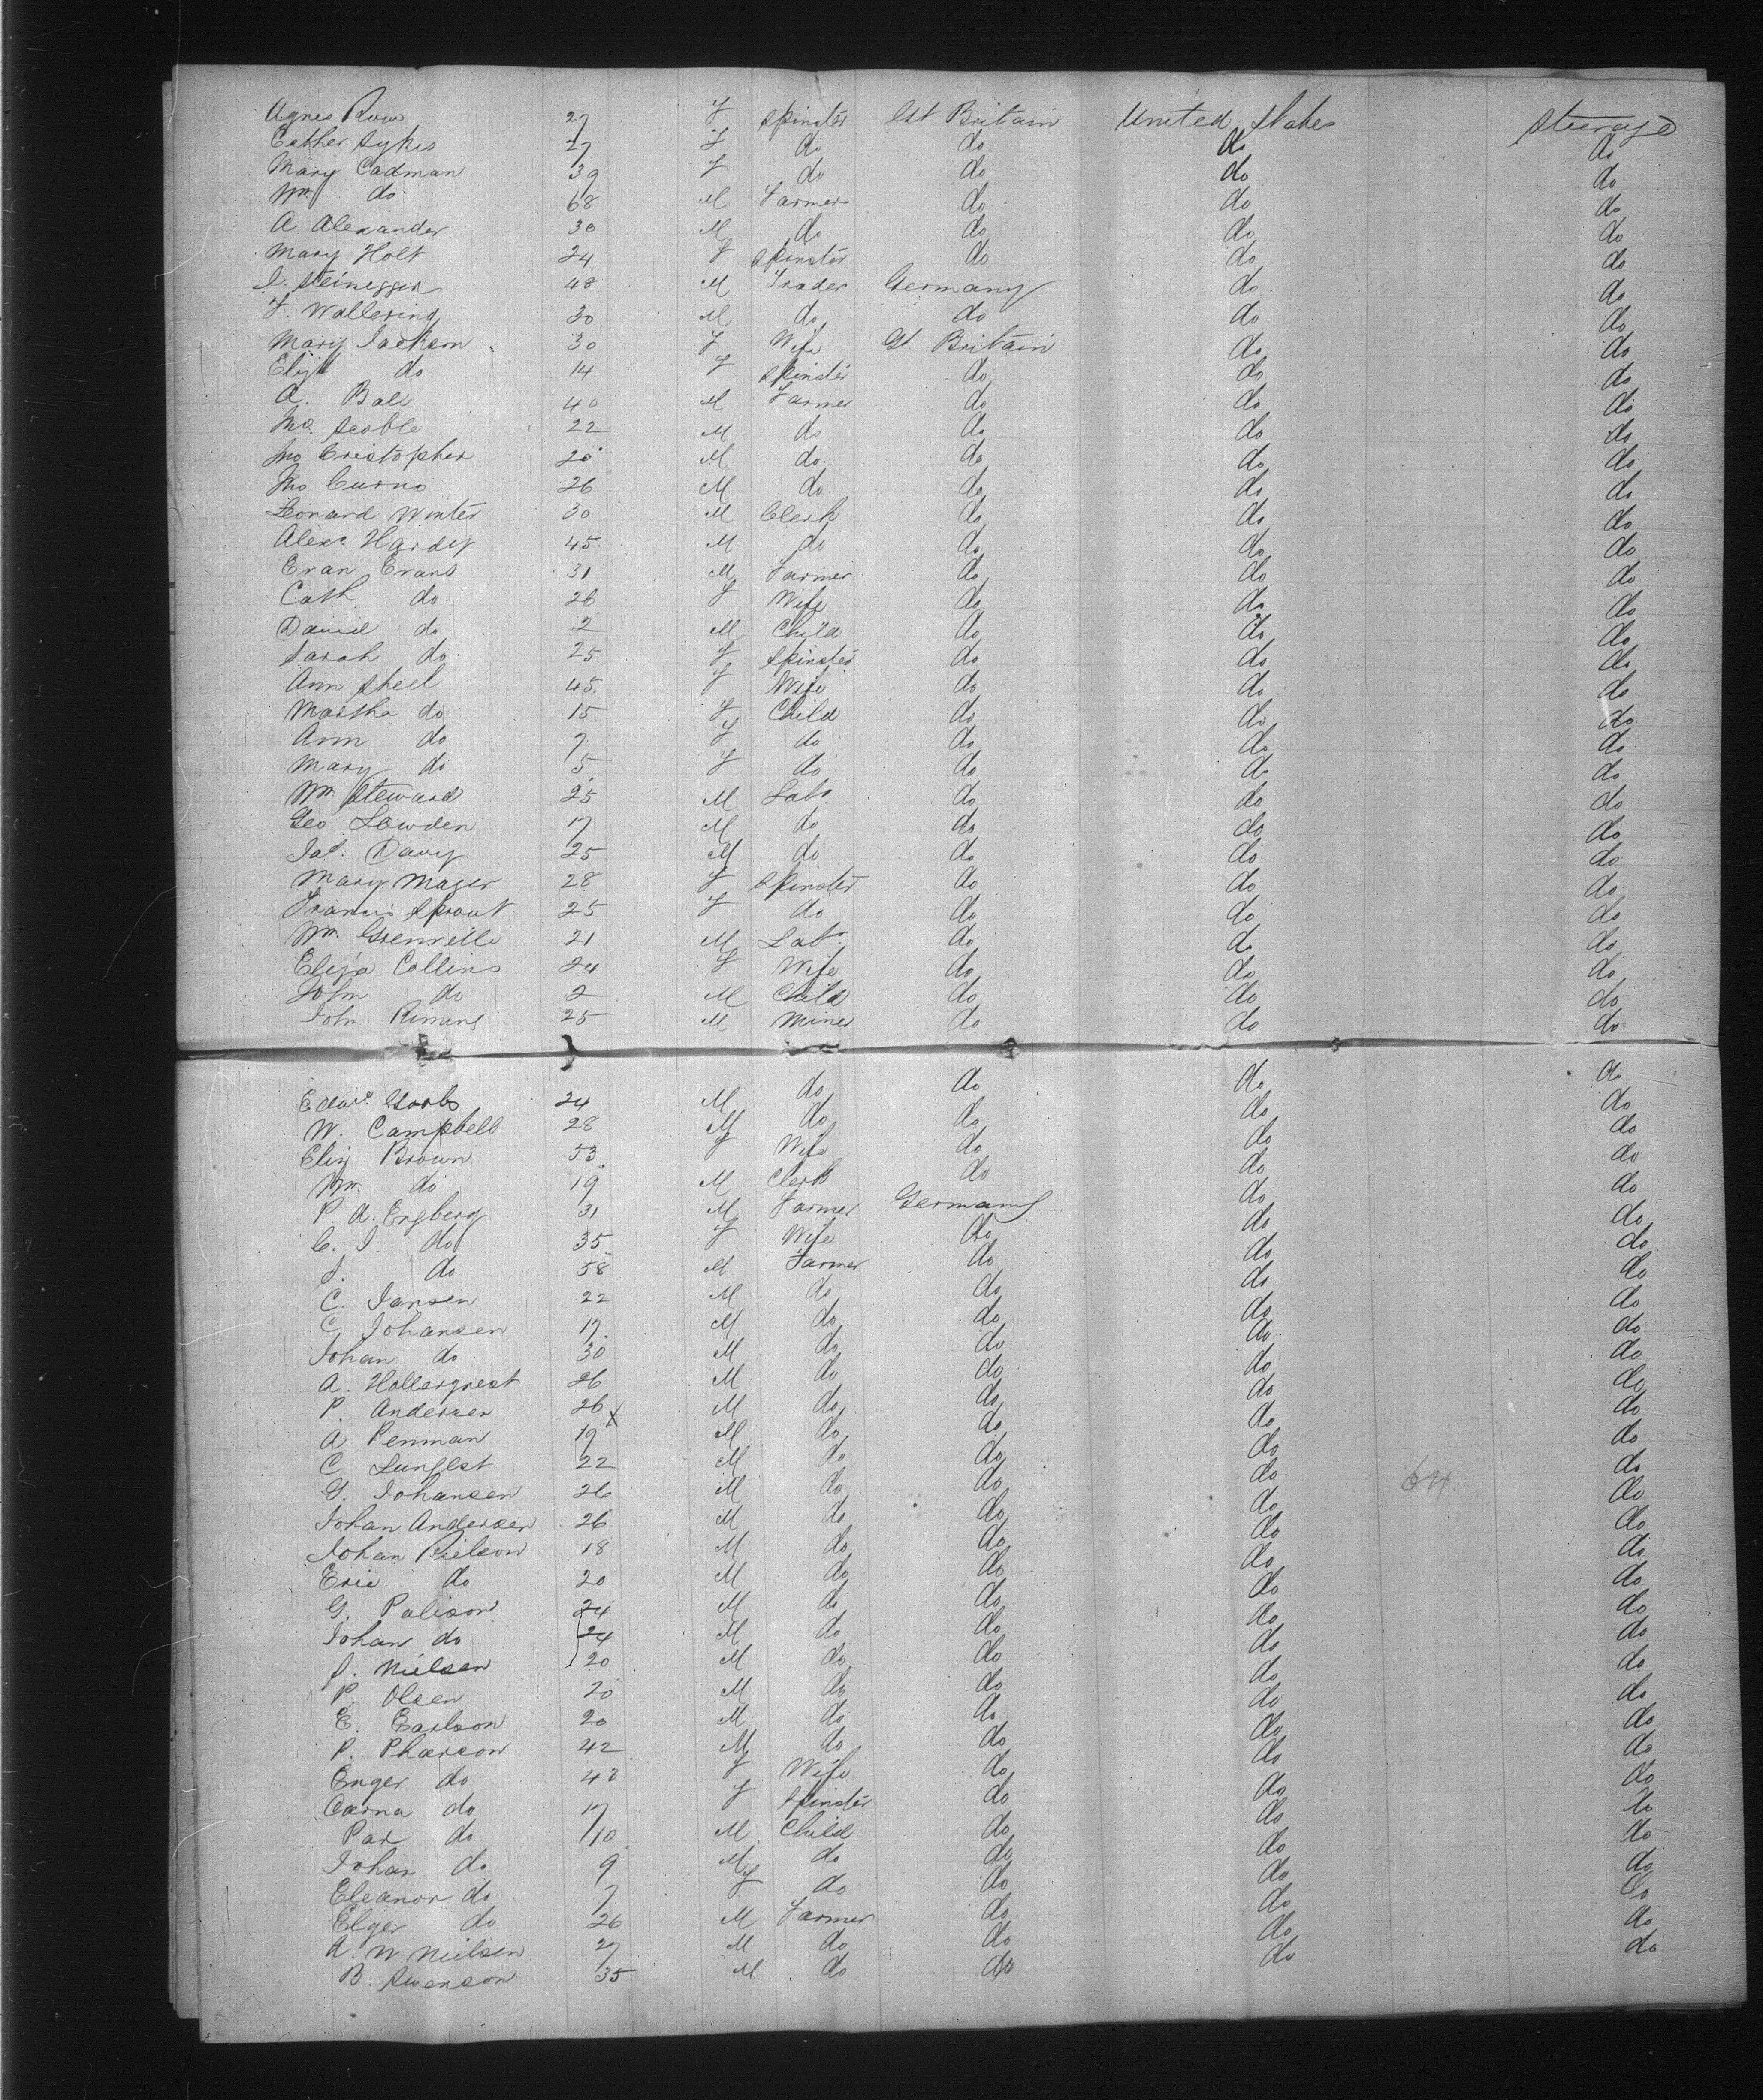 Agnes Row 27 F Spinster Gt Britain United States Steerage
Esther Sykes 27 F do do do do
Mary Cadman 39 F do do do do
Wm do 68 M Farmer do do do
A Alexander 30 M do do do do
Mary Holt 24 F Spinster do do do
J. Steinegger 48 M Trader Germany do do
F. Wallering 30 M do do do do
Mary Jackson 30 F Wife Gt Britain do do
Eliz do 14 F Spinster do do do
A. Ball 40 M Farmer do do do
Jno. Scoble 22 M do do do do
Jno Cristopher 20 M do do do do
Jno Curno 26 M do do do do
Leonard Winter 30 M Clerk do do do
Alexr Hardy 45 M do do do do
Evan Evans 31 M Farmer do do do
Cath do 26 F Wife do do do
David do 2 M Child do do do
Sarah do 25 F Spinster do do do
Ann Steel 45 F Wife do do do
Martha do 15 F Child do do do
Ann do 7 F do do do do
Mary do 5 F do do do do
Wm Steward 25 M Labr do do do
Geo Lowden 17 M do do do do
Jas. Davy 25 M do do do do
Mary Mager 28 F Spinster do do do
Francis Sprout 25 F do do do do
Wm Grenville 21 M Labr do do do
Eliza Collins 24 F Wife do do do
John do 2 M Child do do do
John 25 M Miner do do do
Edwd 24 M do do do do
W. Campbell 28 M do do do do
Eliz Brown 53 F Wife do do do
Wm do 19 M Clerk do do do
P. A. Engberg 31 M Farmer Germany do do
C. J. do 35 F Wife do do do
J. do 58 M Farmer do do do
C. Jansen 22 M do do do do
C. Johansen 17 M do do do do
Johan do 30 M do do do do
A. Hollergrest 26 M do do do do
P. Andersen 26 x M do do do do
A Penman 19 M do do do do
C Lungest 22 M do do do do
G. Johansen 26 M do do do 64 do
Johan Andersen 26 M do do do do
Johan Pielson 18 M do do do do
Eric do 20 M do do do do
G. Palison 24 M do do do do
Johan do 24 M do do do do
J. Nielsen 20 M do do do do
P. Olsen 20 M do do do do
E. Earlson 20 M do do do do
P. Pharson 42 M do do do do
Enger do 48 F Wife do do do
Carna do 17 F Spinster do do do
Par do 10 M Child do do do
Johan do 9 M do do do do
Eleanor do 7 F do do do do
Elger do 26 M Farmer do do do
A. W Nielsen 27 M do do do do
B. Swenson 35 M do do do do